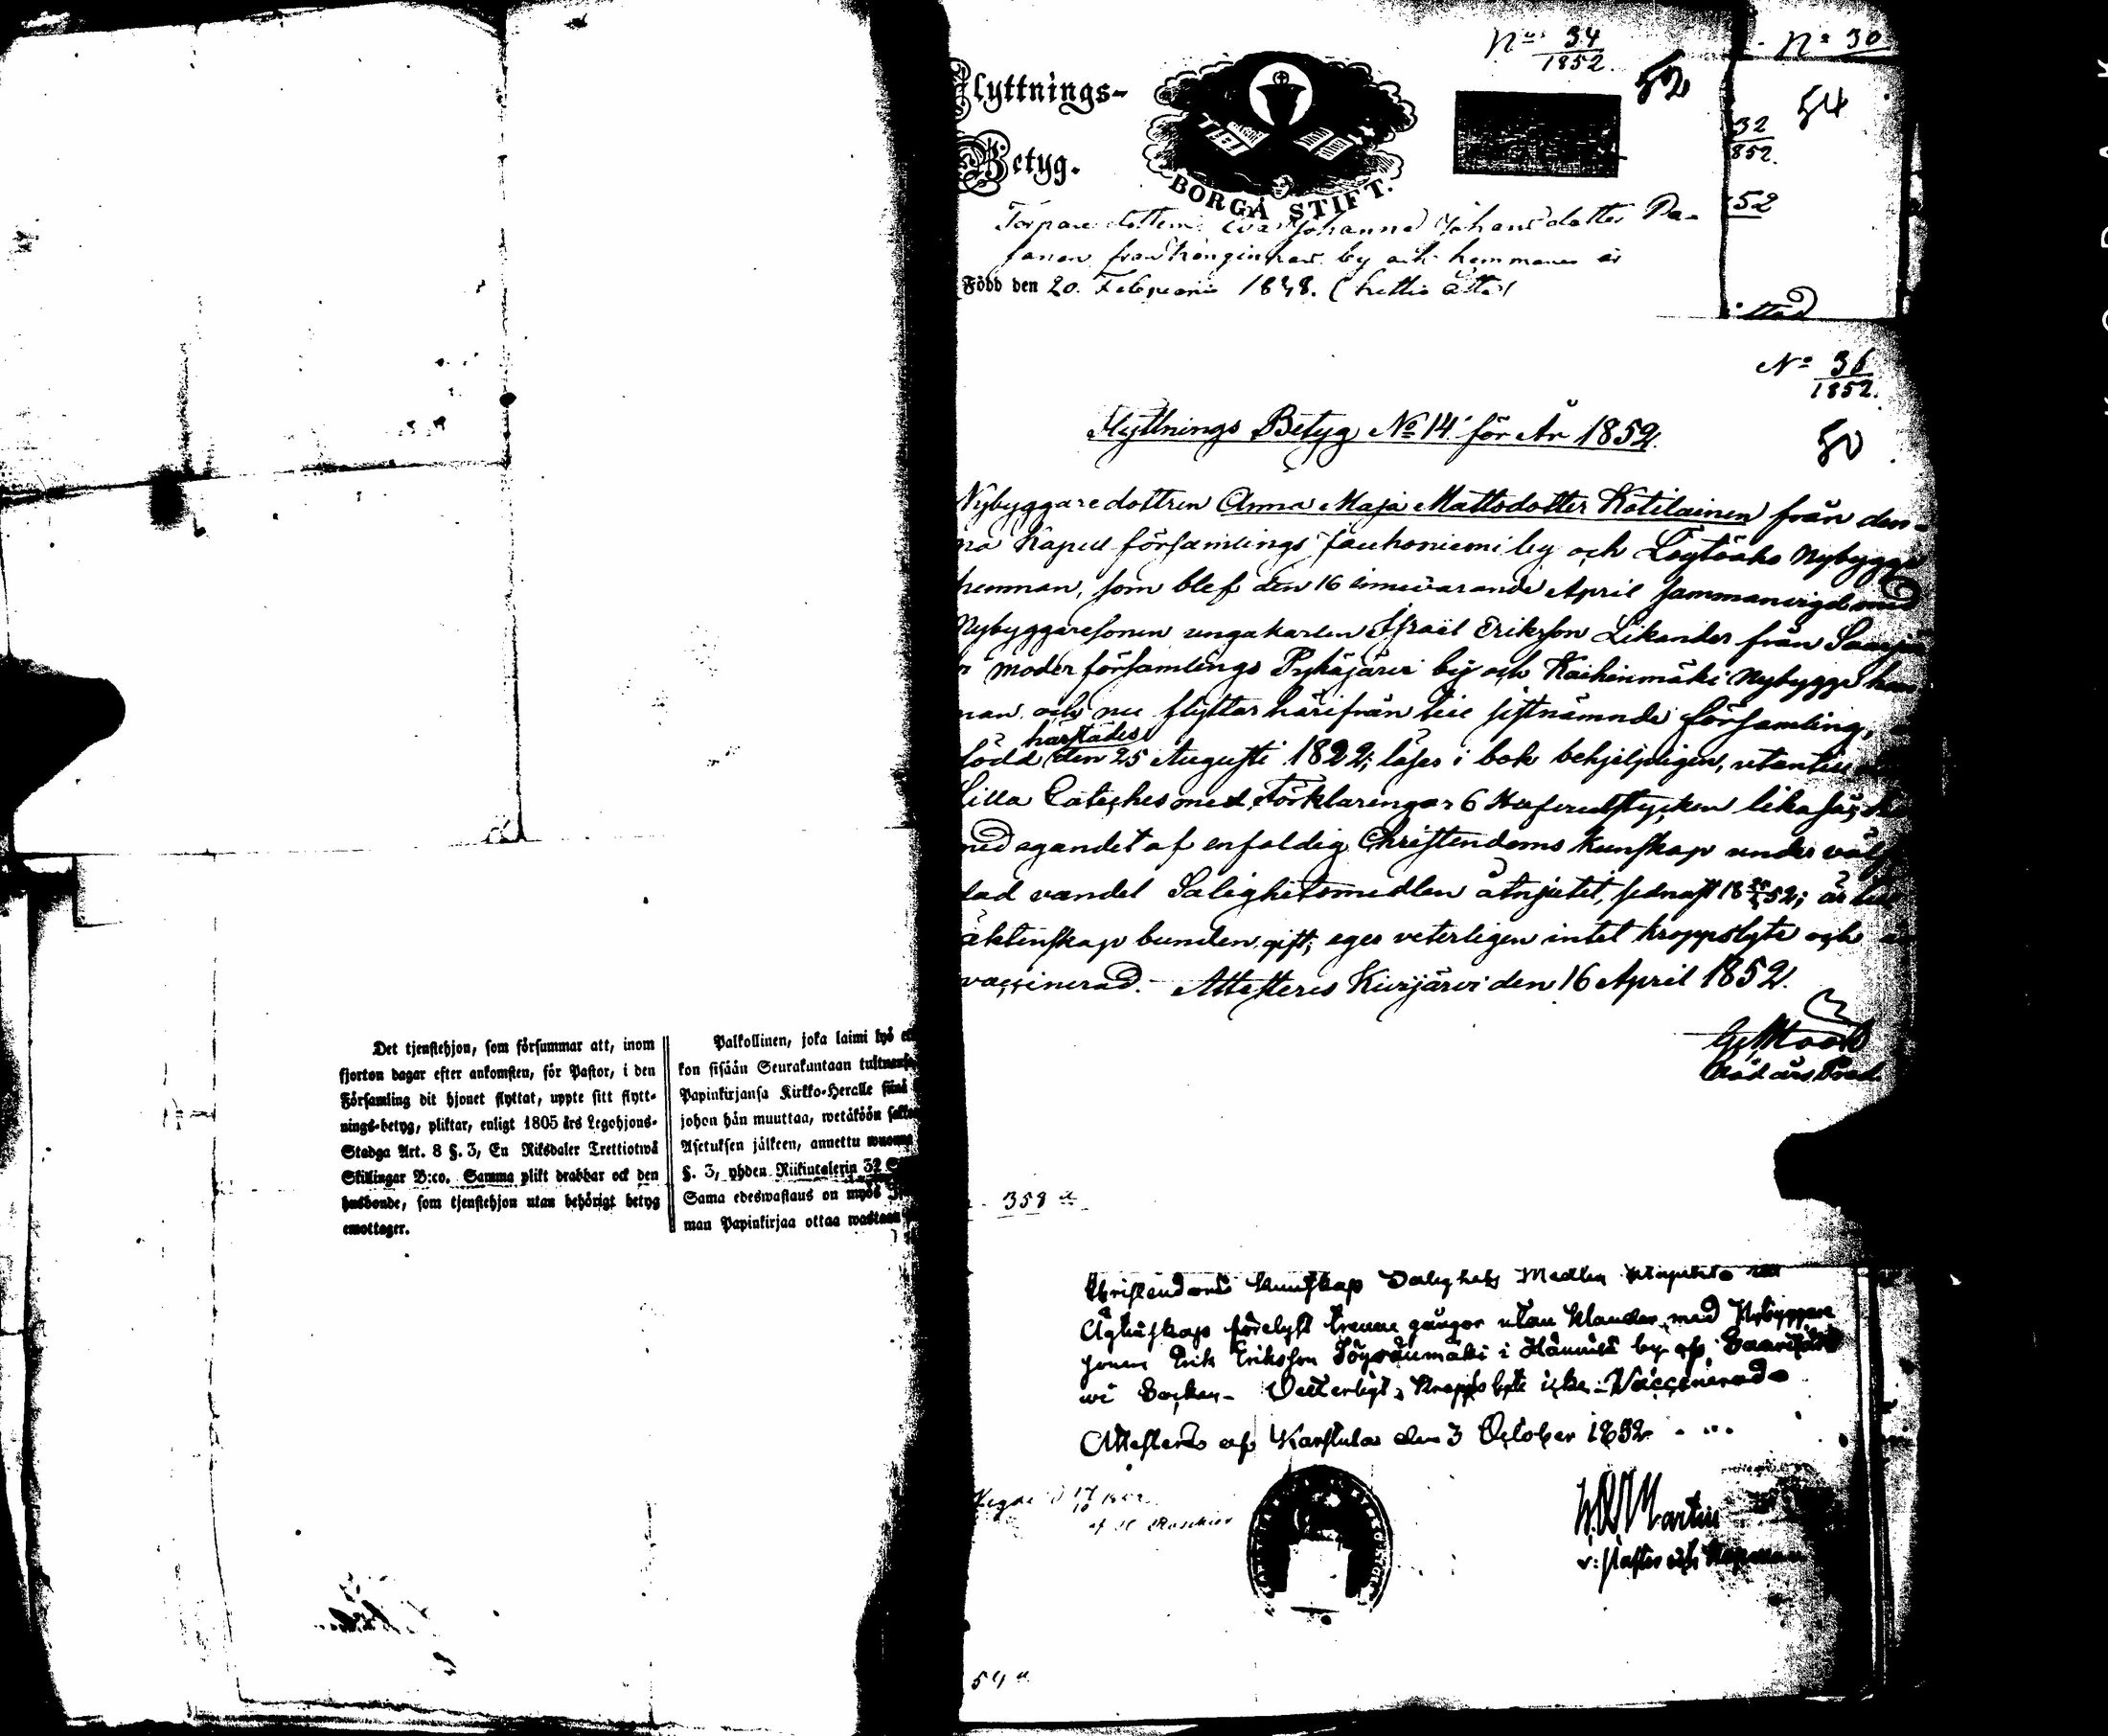 Det tjenstehjon, som försummar att, inom
fjorton dagar efter ankomsten, för Pastor, i den
Församling dit hjonet flyttat, uppte sitt flytt-
nings-betyg, pliktar, enligt 1805 års Legohjons-
Stadga Art. 8 §. 3, En Riksdaler Trettiotwå
Skillingar B:co. Samma plikt drabbar ock den
husbonde, som tjenstehjon utan behörigt betyg
emottager.
Palkollinen, joka laimi lyö
kon sisään Seurakuntaan
Papinkirjansa Kirkko-Heralle
johon hän muuttaa, wetäköön
Asetuksen jälkeen, annettu
§. 3, yhden Riikintalerin 32
Sama edeswastaus on myös
man Papinkirjaa ottaa wastaan
No 34
1852.
52
Flyttnings-
Betyg.
BORGÅ STIFT.
Johanna Johansdotter Pa-
by och hemman är
Född den 20. Februarii 1838. (trettio åtta)
No 30
54
32
852.
52
No 36
1852.
50
Flyttnings Betyg No 14 för År 1852.
Nybyggaredottren Anna Maja Mattsdotter Kotilainen från den-
na Kapell församlings Jauhoniemi by och Löytöaho Nybygge
hemman, som blef den 16 innevarande April sammanvigd med
Nybyggaresonen ungakarlen Israël Eriksson Likander från Saarijär
moder församlings Pyhäjärvi by och Kaihinmäki Nybygge hem
man och nu flyttar härifrån till sistnämnde församling,
härstädes
född den 25 Augusti 1822; läser i bok behjelpligen, utantill
Lilla Cateches med Förklaringar 6 Hufvudstycken likaså;
med egandet af enfaldig Christendoms kunskap under väl
dad vandel Salighetsmedlen åtnjutit, sednast 18 52; är till
äktenskap bunden gift; eger veterligen intet kroppslyte och är
vaccinerad. - Attesteras Kivijärvi den 16 April 1852.
358 a
Christendoms kunskap Salighets Medlen
Ägtenskap förelyst trenne gånger utan klander med Nybyggare
sonen Erik Eriksson Löyräumäki i Hännilä by af Saarijär
wi Socken. Vetterligt Kropps lyte icke. Vaccinerad
Attesteras af Karstula den 3 October 1852
Vigde d 17/10 1852
af H Roschier
Martin
v: Pastor och
54 a